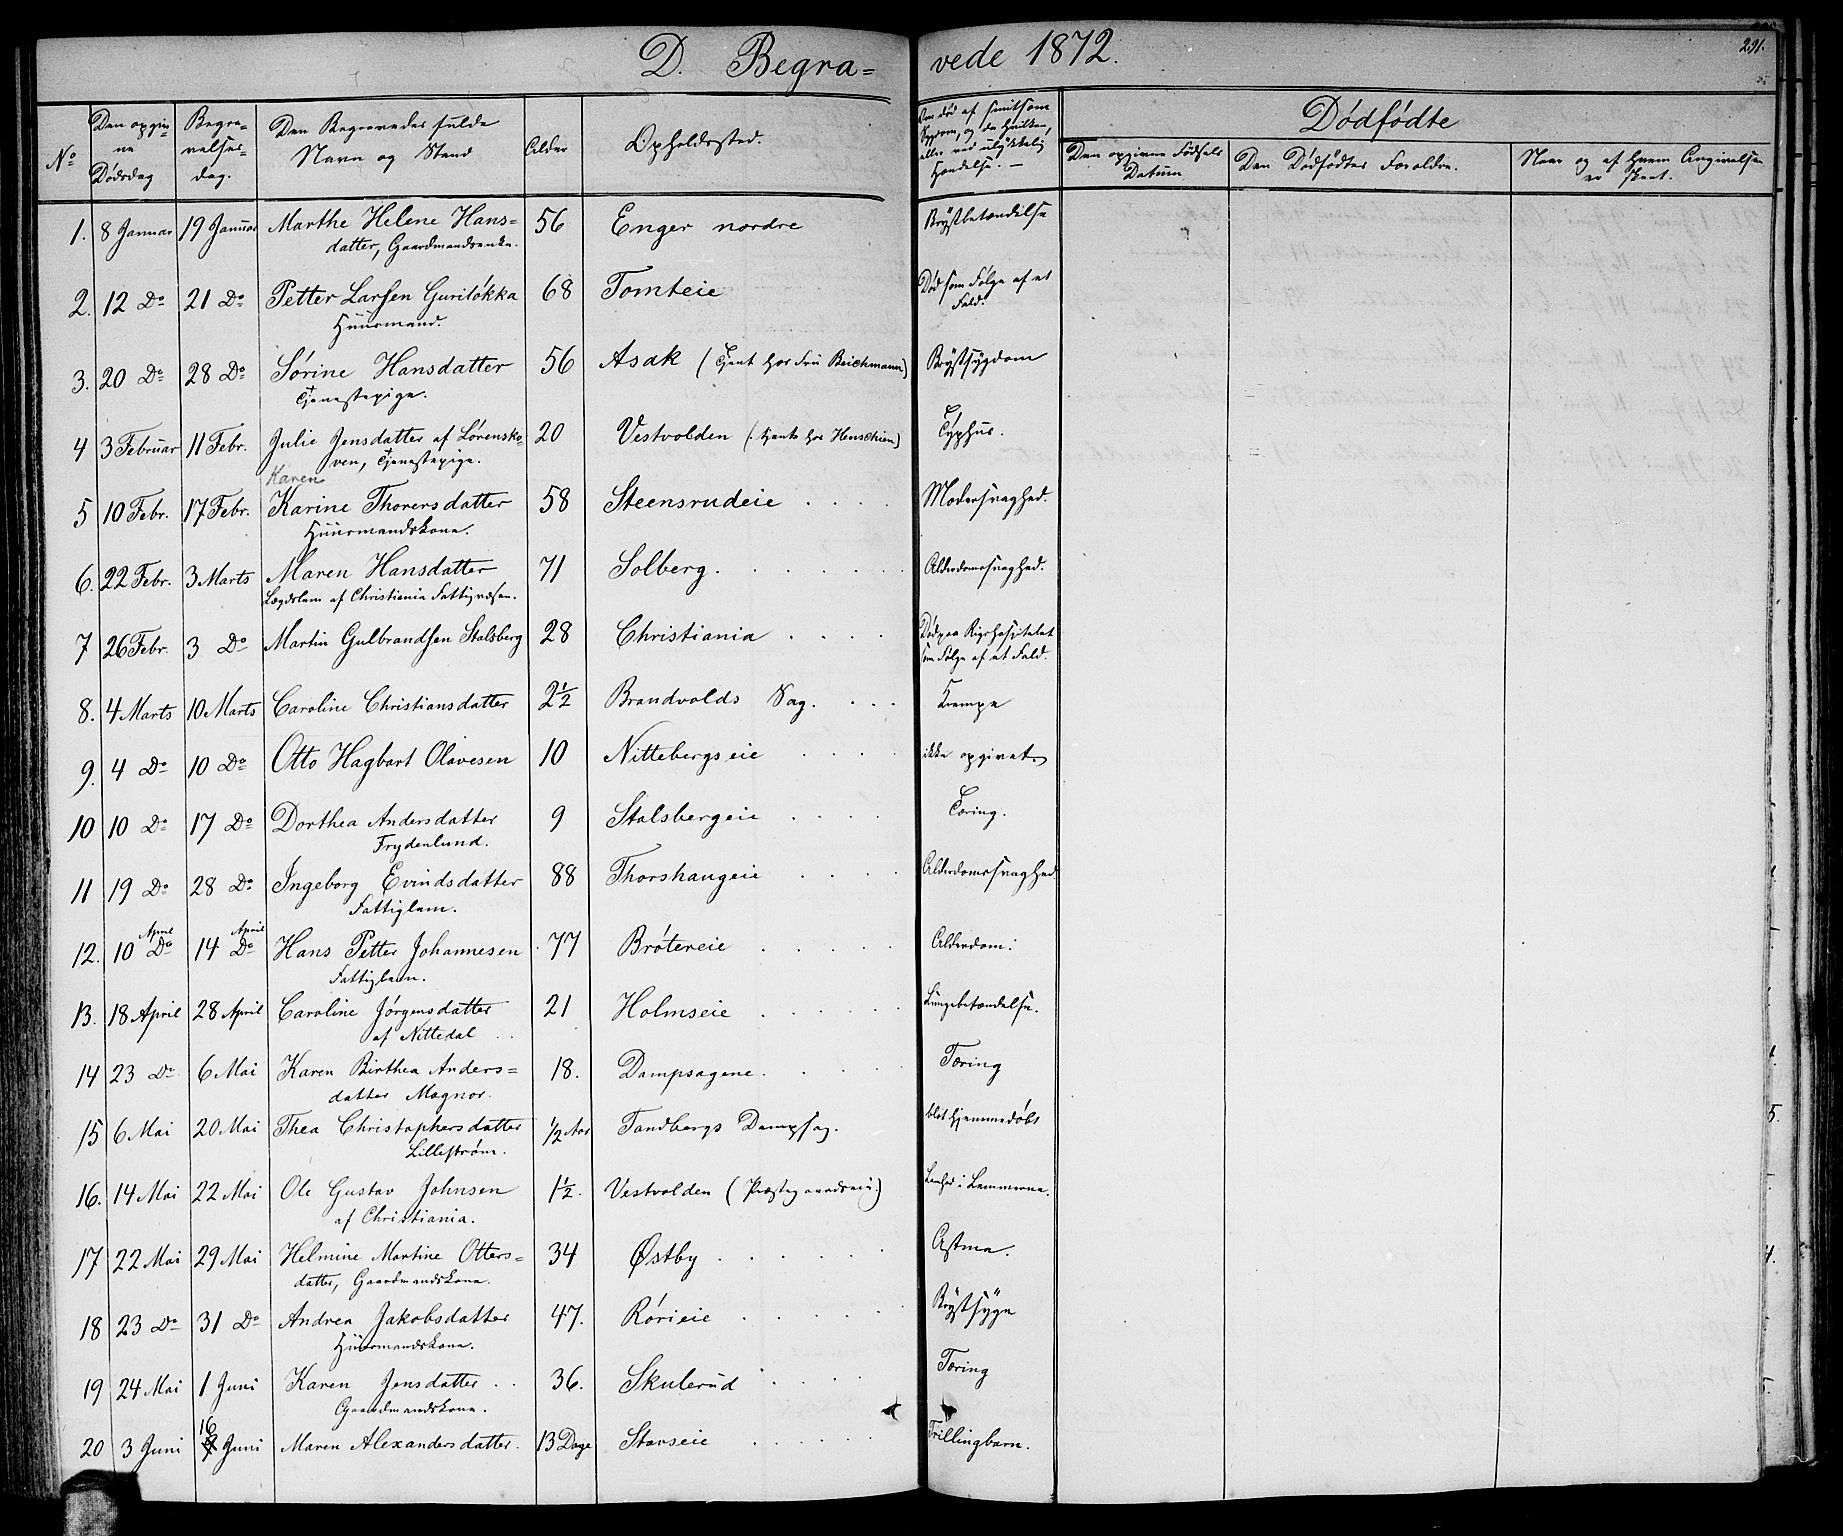 D. Begra= vede 1872.
291.
No
Den opgiv
ne
Dødsdag
Begra-
velses-
dag.
Den Begravedes fulde
Navn og Stand
Alder
Opholdssted.
Om død af smitsom
Sygdom, og da hvilken,
eller ved ulykkelig
Hændelse. —
Dødfødte
Den opgivne Fødsels
Datum
Den Dødfødtes Forældre.
Naar og af hvem Angivelsen
er skeet.
1. 8 Januar 19 Januar Marthe Helene Hans= 56 Enger nordre Brystbetændelse
datter, Gaardmandsenke.
2. 12 Do 21 Do Petter Larsen Guriløkka 68 Tomteie Død som Følge af et
Huusmand. Fald.
3. 20 Do 28 Do Sørine Hansdatter 56 Asak (tjent hos Fru Beichmann) Brystsygdom
Tjenestepige.
4 3 Februar 11 Febr. Julie Jensdatter af Lørensko- 20 Vestvolden (tjente hos Henschien) Typhus.
ven, Tjenestepige.
Karen
5 10 Febr. 17 Febr. Karine Thorersdatter 58 Steensrudeie . . . . Modersvaghed.
Huusmandskone.
6. 22 Febr. 3 Marts Maren Hansdatter 71 Solberg. . . . . . Alderdomssvaghed.
Lægdslem af Christiania Fattigvæsen.
7 26 Febr. 3 Do Martin Gulbrandsen Stalsberg 28 Christiania . . . . Død paa Rigshospitalet
som Følge af et Fald.
8. 4 Marts 10 Marts Caroline Christiansdatter 2½ Brandvolds Sag. . . . Krampe
9. 4 Do 10 Do Otto Hagbart Olavesen 10 Nittebergseie . . . ikke opgivet.
10 10 Do 17 Do Dorthea Andersdatter 9 Stalsbergeie . . . . Tæring.
Frydenlund.
11 19 Do 28 Do Ingeborg Evindsdatter 88 Thorshaugeie . . . . Alderdomssvaghed
Fattiglem.
April April
12. 10 Do 14 Do Hans Petter Johannesen 77 Brøtereie . . . . . Alderdom.
Fattiglem.
13. 18 April 28 April Caroline Jørgensdatter 21 Holmseie . . . . . . Lungebetændelse.
af Nittedal . .
14 23 Do 6 Mai Karen Birthea Anders= 18. Dampsagene. . . . . Tæring
datter Magnor.
15 6 Mai 20 Mai Thea Christophersdatter ½ Aar Tandbergs Dampsag. blot hjemmedøbt
Lillestrøm.
16. 14 Mai 22 Mai Ole Gustav Johnsen 1½. Vestvolden (Præstegaardseie.) i Lemmerne.
af Christiania.
17 22 Mai 29 Mai Helmine Martine Otters= 34 Østby . . . . Astma.
datter, Gaardmandskone.
18 23 Do 31 Do Andrea Jakobsdatter 47. Rørieie . . . . Brystsyge
Huusmandskone.
19 24 Mai 1 Juni Karen Jensdatter . . 36. Skulerud . . . . Tæring
Gaardmandskone.
16
20 3 Juni Juni Maren Alexandersdatter. 13 Dage Stavseie . . . . . Trillingbarn.